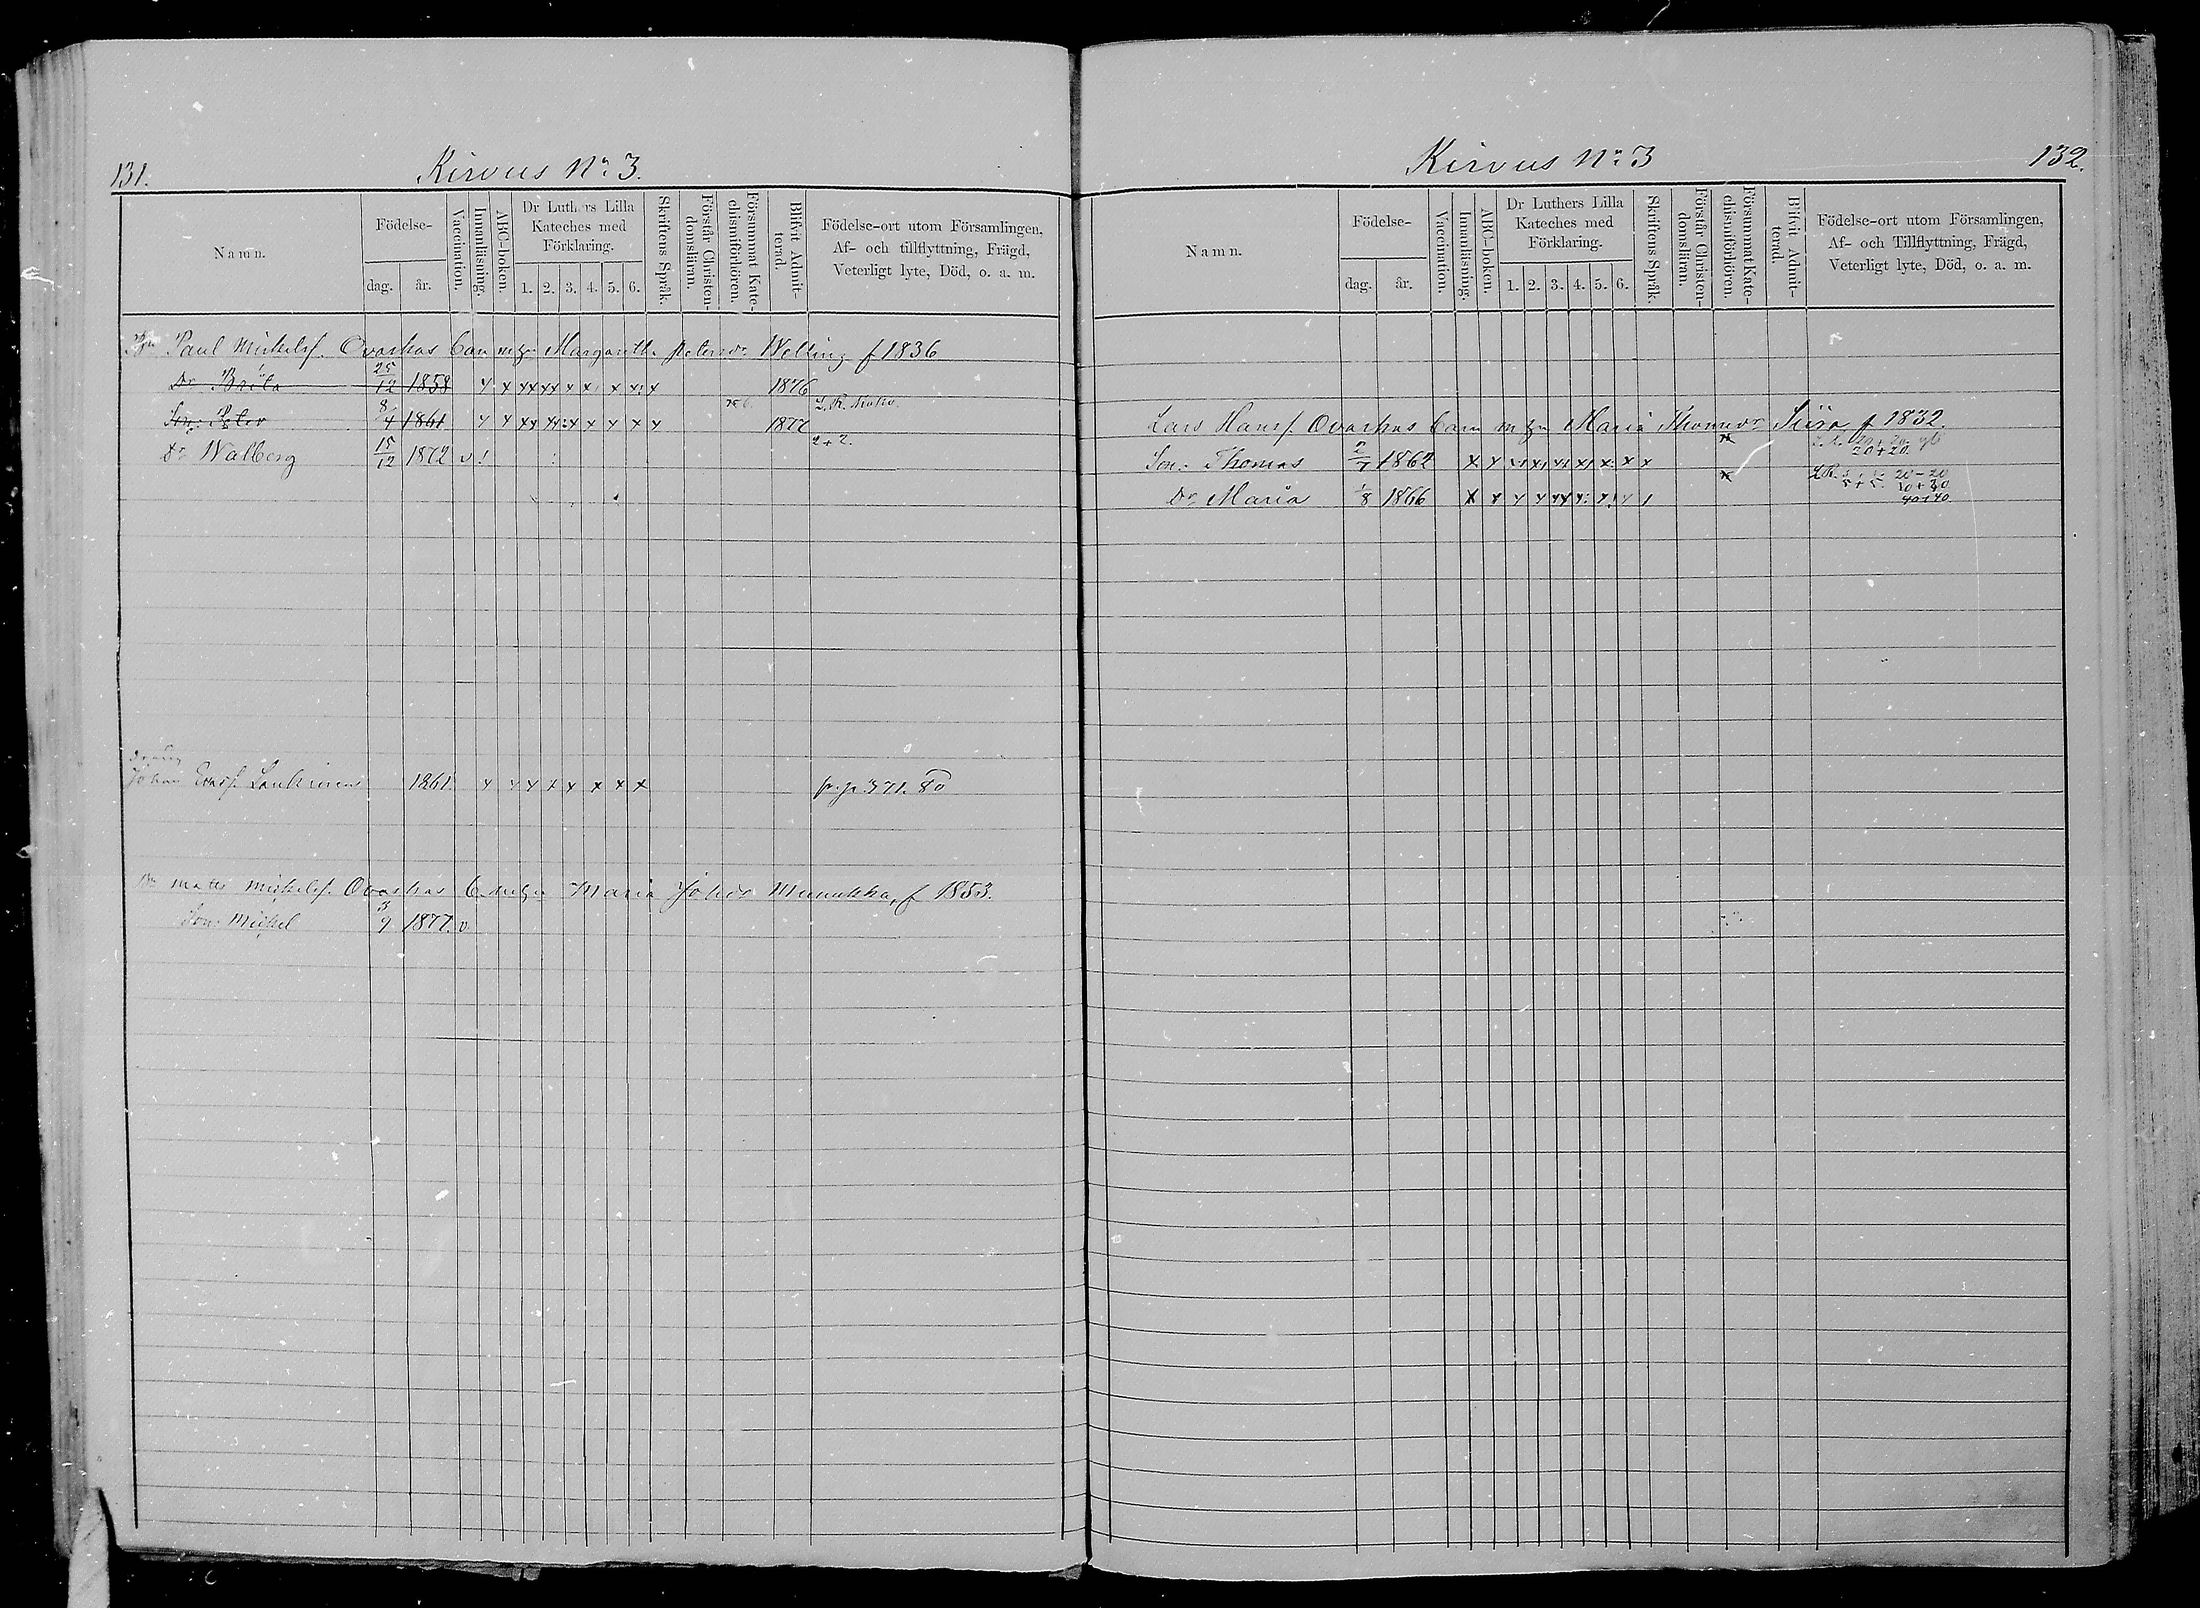 131.
Kirvus No 3.
Namn.
Födelse-
dag. år.
Vaccination.
Innanläsning.
ABC-boken.
Dr Luthers Lilla Kateches med Förklaring.
1. 2. 3. 4. 5. 6.
Skriftens Språk.
Förstår Christen-domsläran.
Försummat Kate-chismiförhören.
Blifvit Admit-terad.
Födelse-ort utom Församlingen,
Af- och tillflyttning, Frägd,
Veterligt lyte, Död, o. a. m.
Paul Michelsf. Ovaskas barn m hu Margaretha Petersdr Welling f 1836
Dr Brita 25/12 1858 x x xx xx x x x x x 1876
Son: Peter 8/4 1861 x x xx xx x x x x x 1877
Dr Walberg 15/12 1872 v ! 2+2.
Dräng
Johan 1861. x x x x x x x x fr. p. 371. 80
Matts Michelsf. Ovaskas b. m hu Maria Johdr Munukka, f 1853.
Son: Michel 3/9 1877. v
Kirvus No 3
132.
Namn.
Födelse-
dag. år.
Vaccination.
Innanläsning.
ABC-boken.
Dr Luthers Lilla Kateches med Förklaring.
1. 2. 3. 4. 5. 6.
Skriftens Språk.
Förstår Christen-domsläran.
Försummat Kate-chismiförhören.
Blifvit Admit-terad.
Födelse-ort utom Församlingen,
Af- och Tillflyttning, Frägd,
Veterligt lyte, Död, o. a. m.
Lars Hansf. Ovaskas barn m hu Maria Thomasdr Siira f 1832.
20+20.
Son: Thomas 2/7 1862 x x x x x x x x x
20-20
Dr Maria 1/8 1866 x x x x xx x x x
40+40